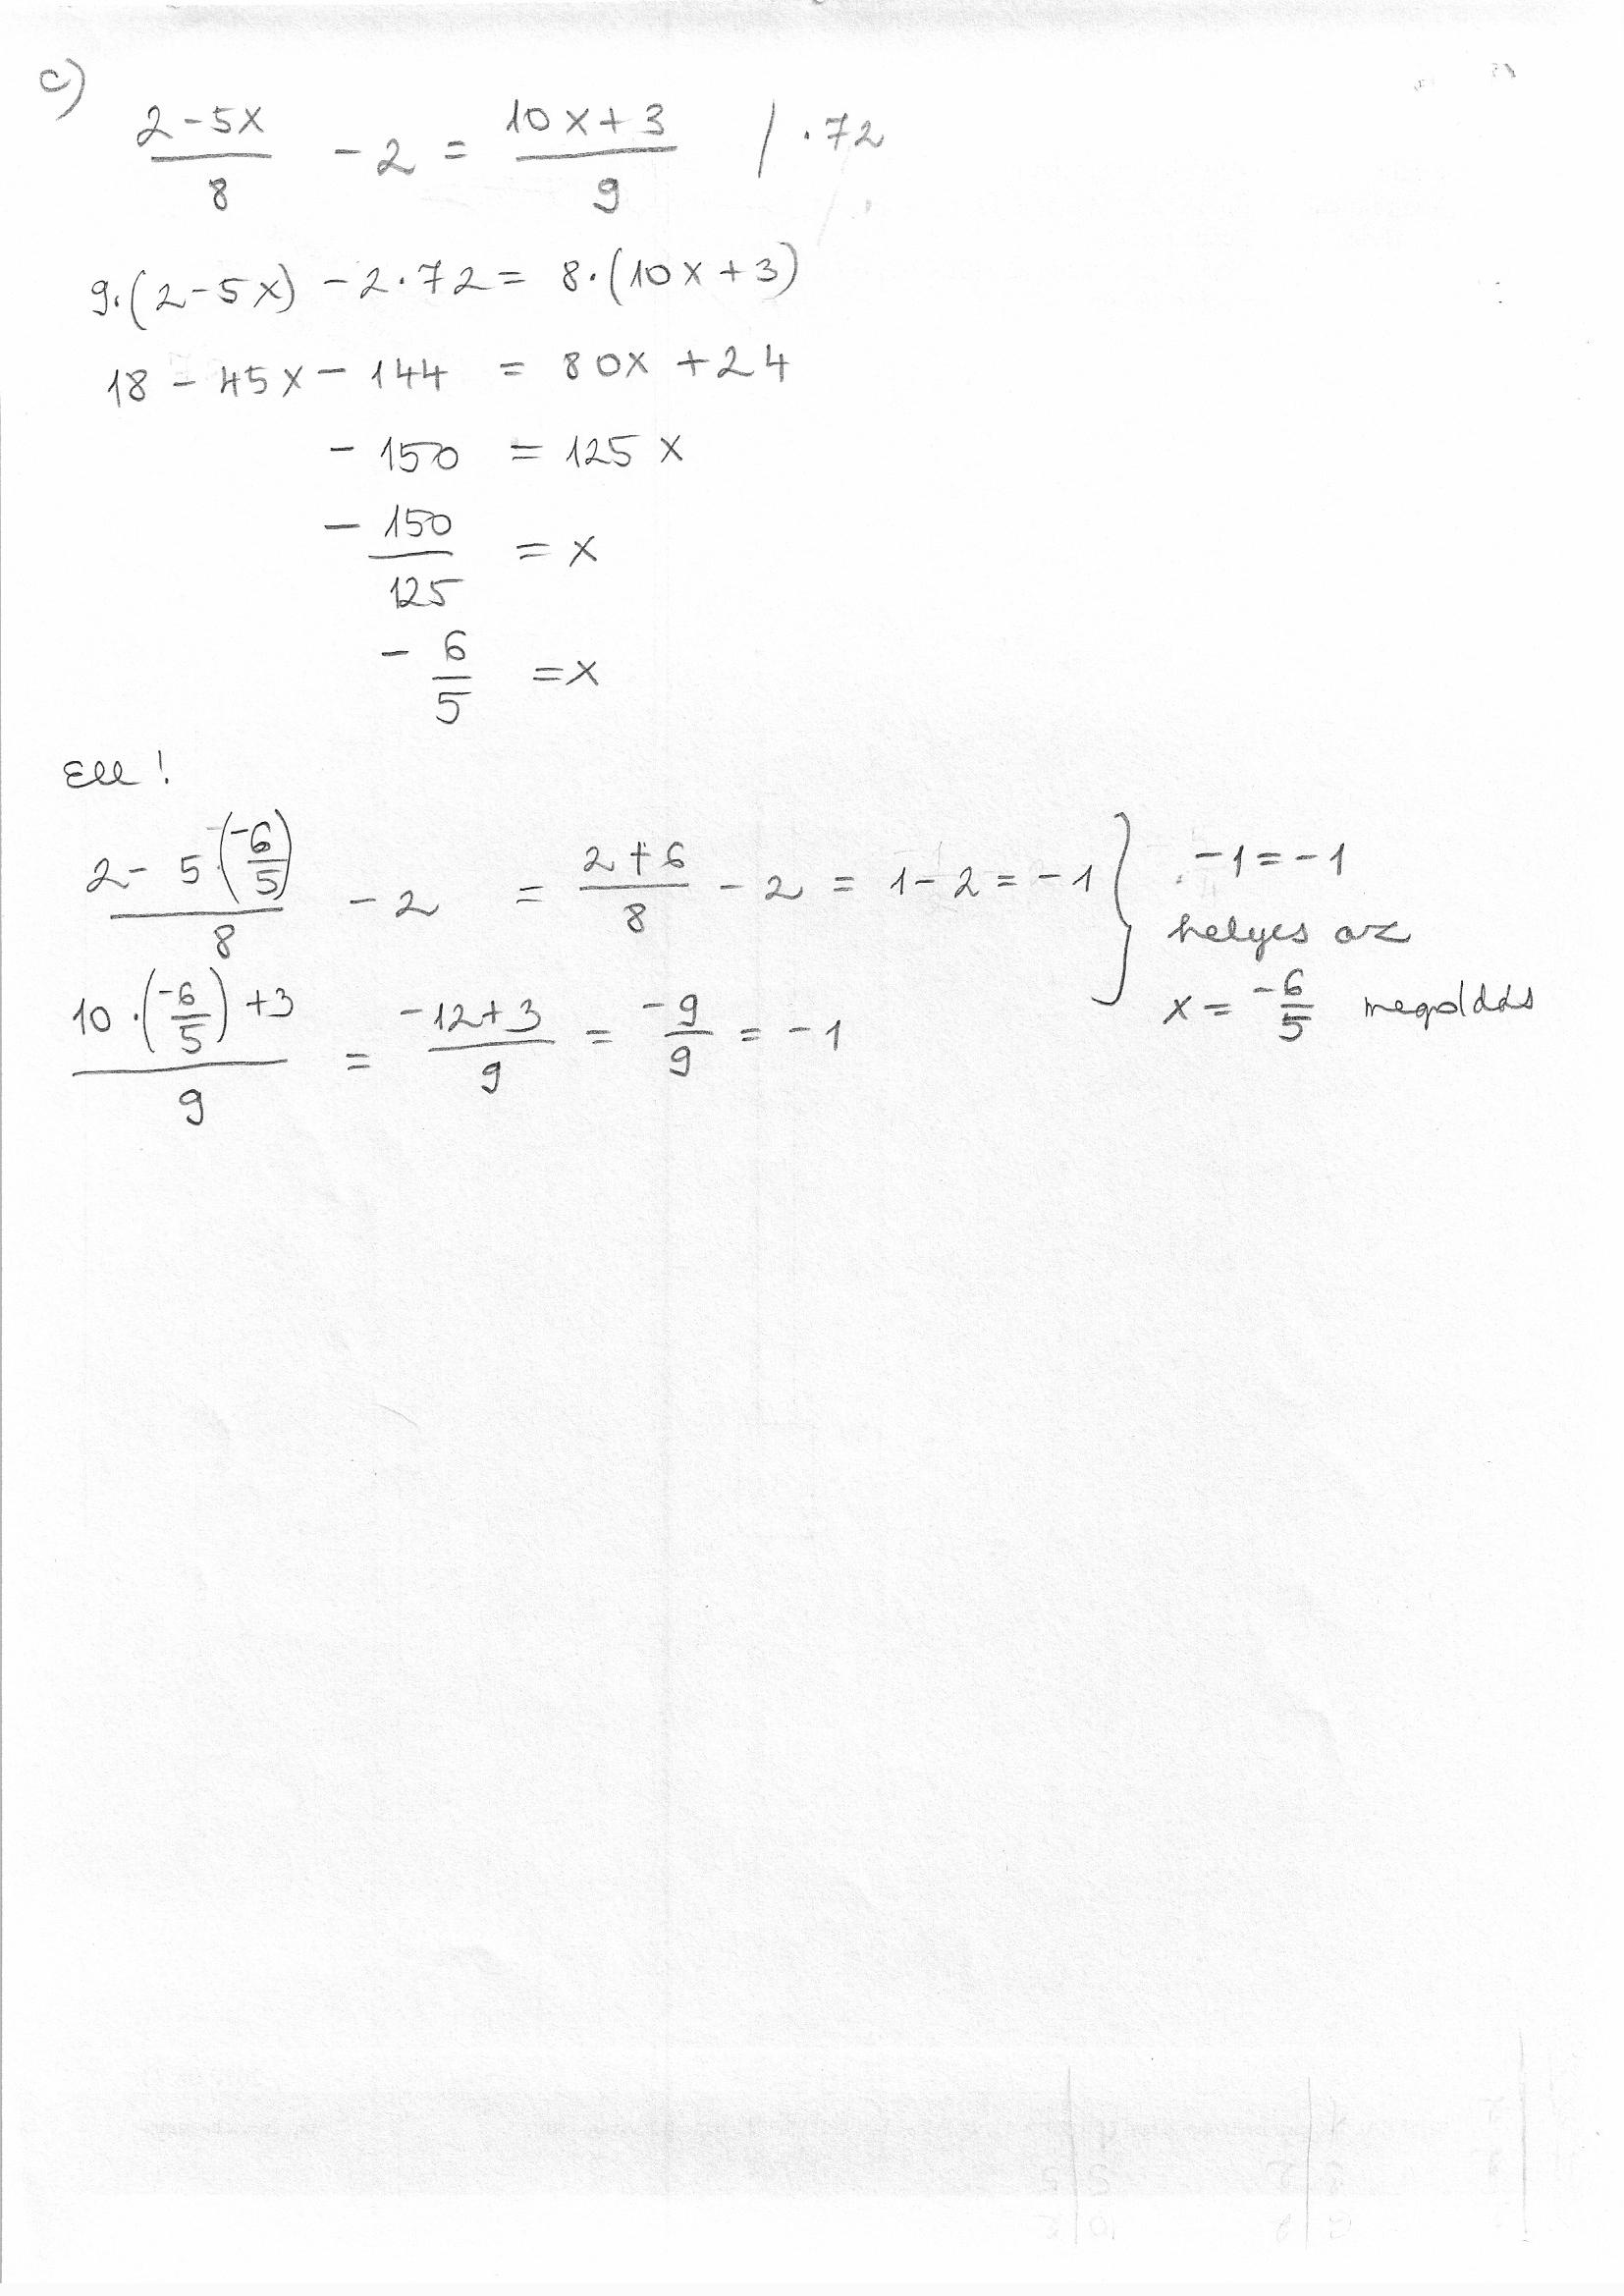 c)
(2-5x)/8 - 2 = (10x+3)/9 / ·72
9·(2-5x) - 2·72 = 8·(10x+3)
18 - 45x - 144 = 80x + 24
- 150 = 125 x
- 150/125 = x
- 6/5 = x
Ell!
(2 - 5·(-6/5))/8 - 2 = (2+6)/8 - 2 = 1 - 2 = -1
(10·(-6/5) + 3)/9 = (-12+3)/9 = -9/9 = -1
-1 = -1
helyes az
x = -6/5 megoldás